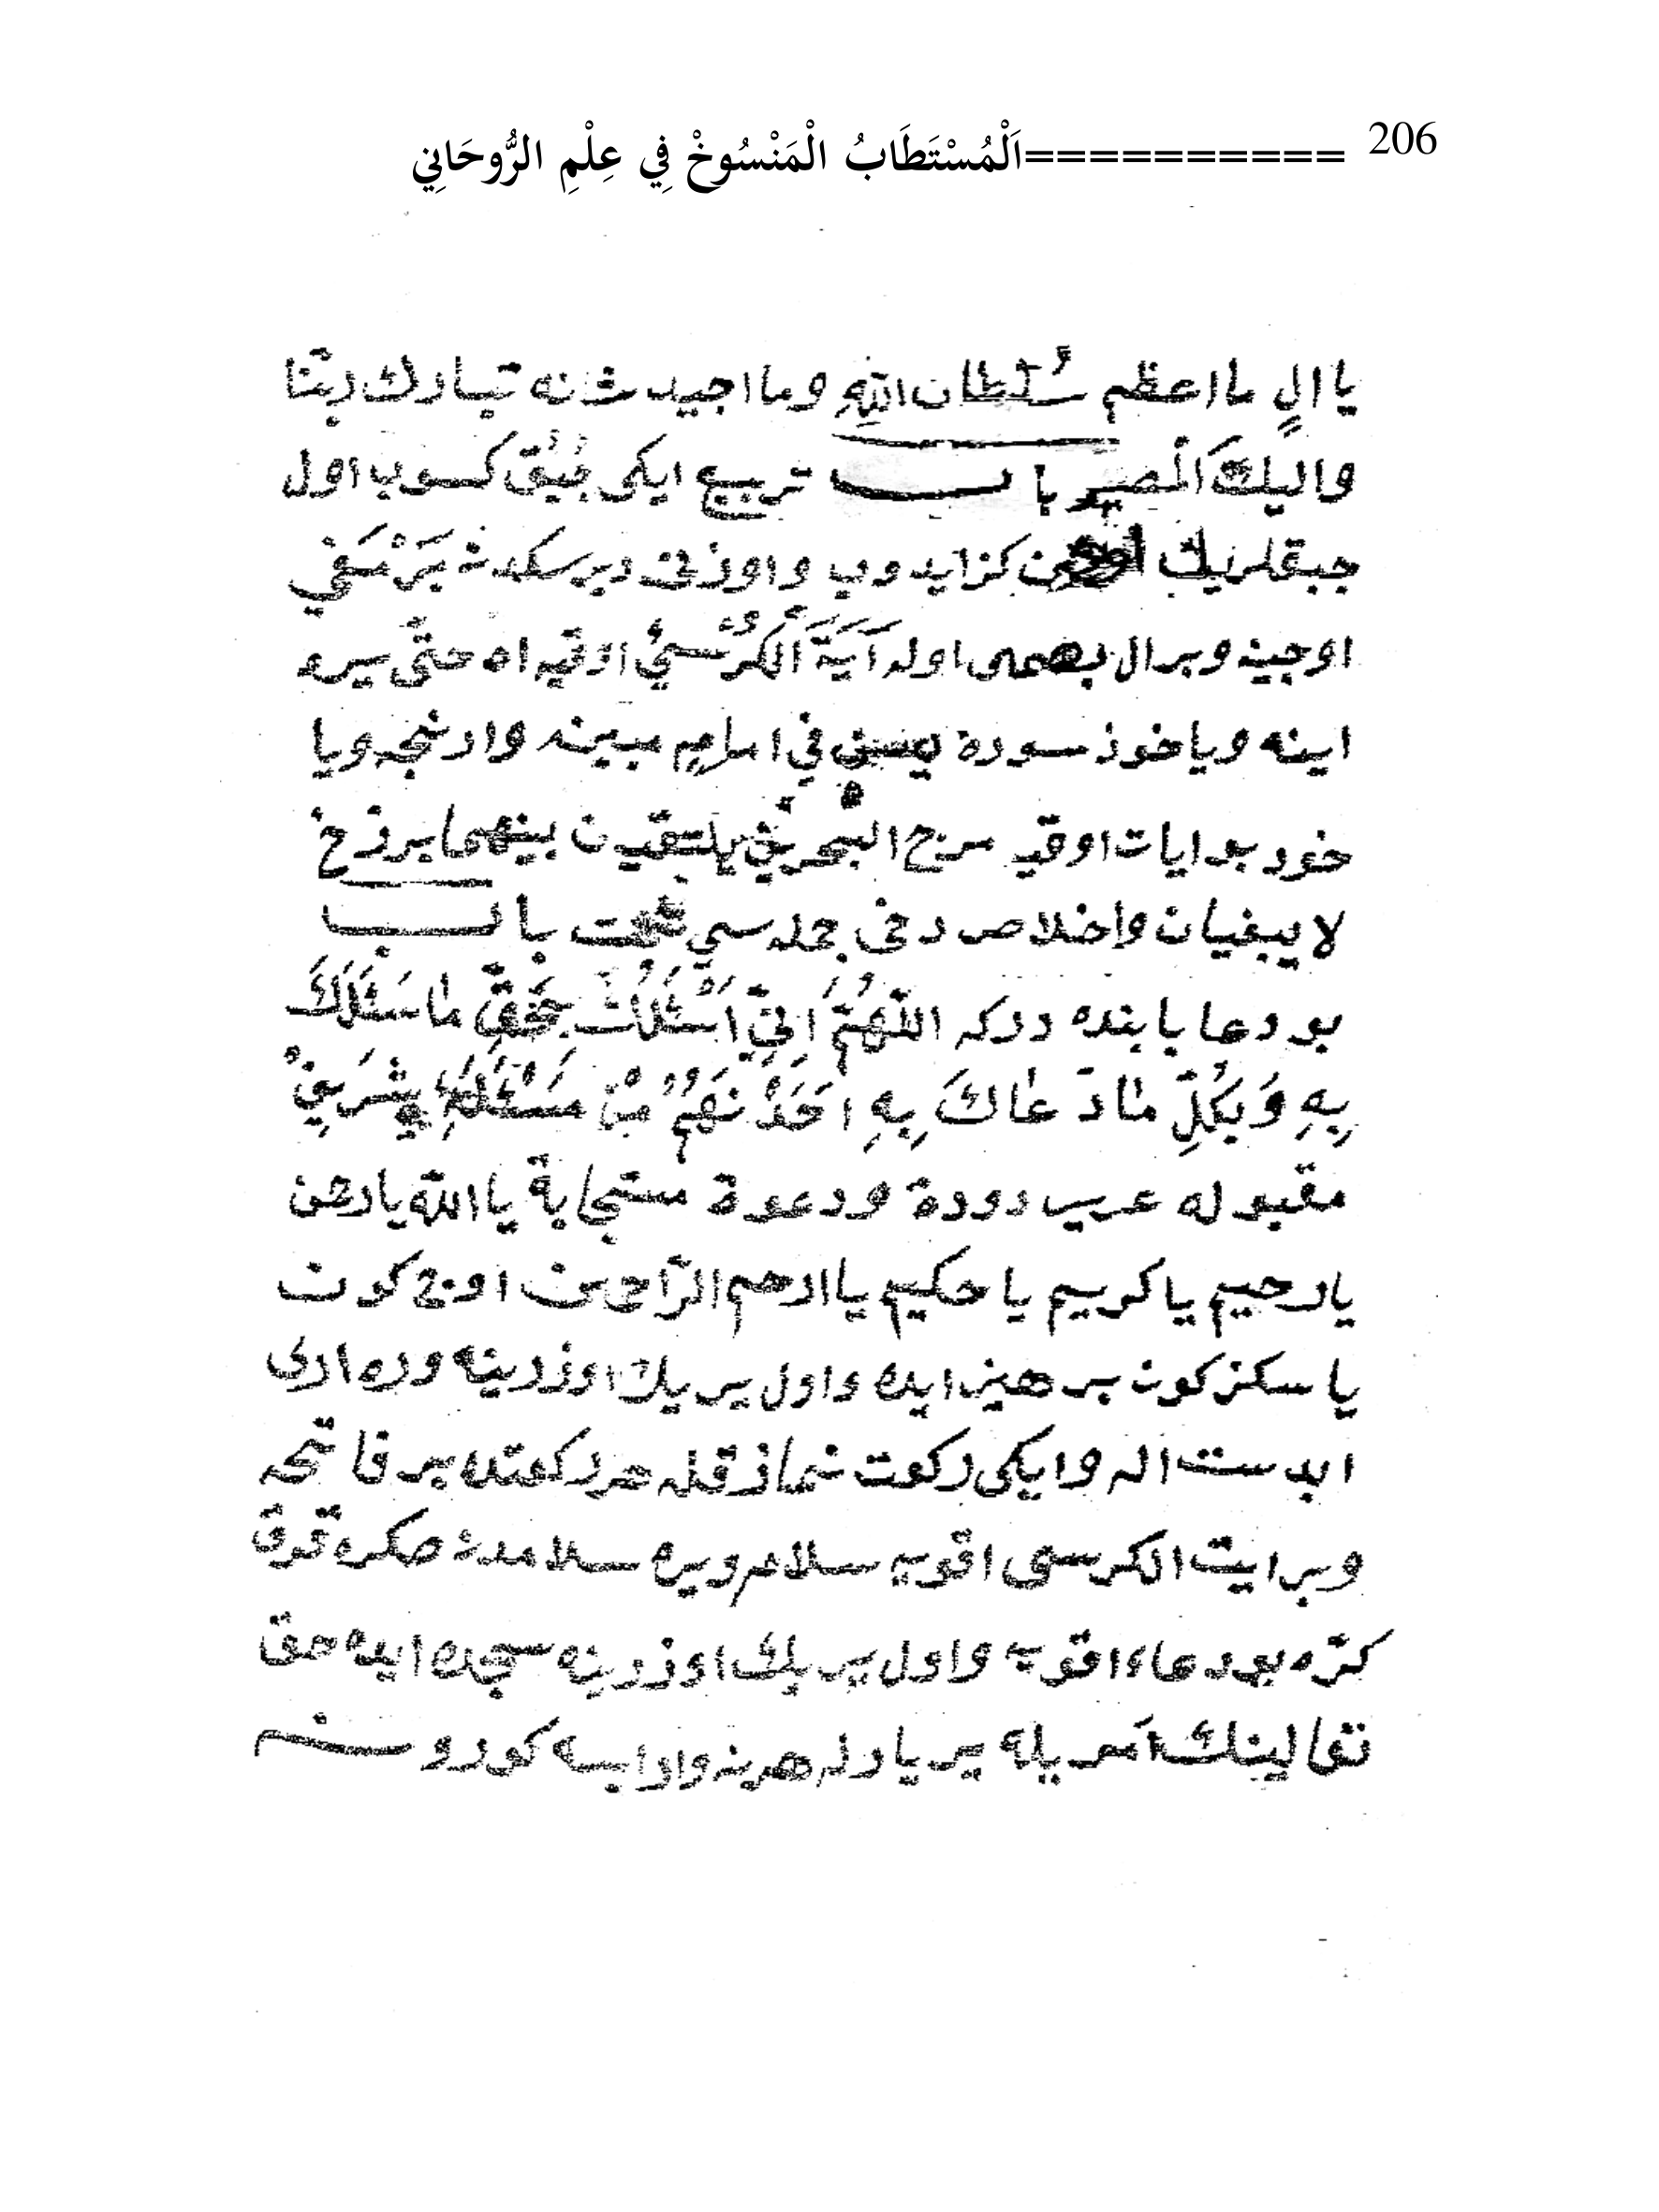 206 ==========اَلْمُسْتَطَابُ الْمَنْسُوخْ فِي عِلْمِ الرُّوحَانِي
يا الٍ ما اعظم سُلطان اللّٰهِ وما اجيد شانه تبارك ربّنا
واليكَ اَلْمصير باب تربيع ايكى چبق كسوب اول
جبقلريك كزايدوب واوزنى دير سكدن بَرْمَغِي
اوجينه وبرال اوله آيَةَ اَلْكُرْسِيُ اوقيه اه حتّى يره
اينه وياخوذ سورة يسن في امامٍ مبينه وارنجه ويا
خود بو ايات اوقيه مرج البحرين يلتقيان بينهما برزخ
لا يبغيان واخلاص دخى جمله سي تحت باب
بو دعا بابنده دركه اللّهُمَّ اِنّيِ اَسْئَلُكَ بِحَقِّ ماسَئَلَكَ
بِهِ وَبِكُلِّ مٰا دَعٰاكَ بِهِ اَحَدٌ مِنْ مَسْئَلَةٍ شَرِيفٍ
مقبوله ودعوة مستجابة يا اللّه يارحمن
يارحيم ياكريم يا حكيم يا ارحم الرّاحمين اوچ كون
يا سكز كون برهيز ايده واول بر يك اوزرينه وره ارى
ابدست اله وايكى ركعت نماز قله هر ركعتده بر فاتحه
وبر ايت الكرسى اقويه سلام ويره سلامدن صكره قرق
كرّه بو دعاء اقويه واول ير يك اوزرينه سجده ايده حق
تعالينك امر يله ير يا رله هرنه وارايسه كورو